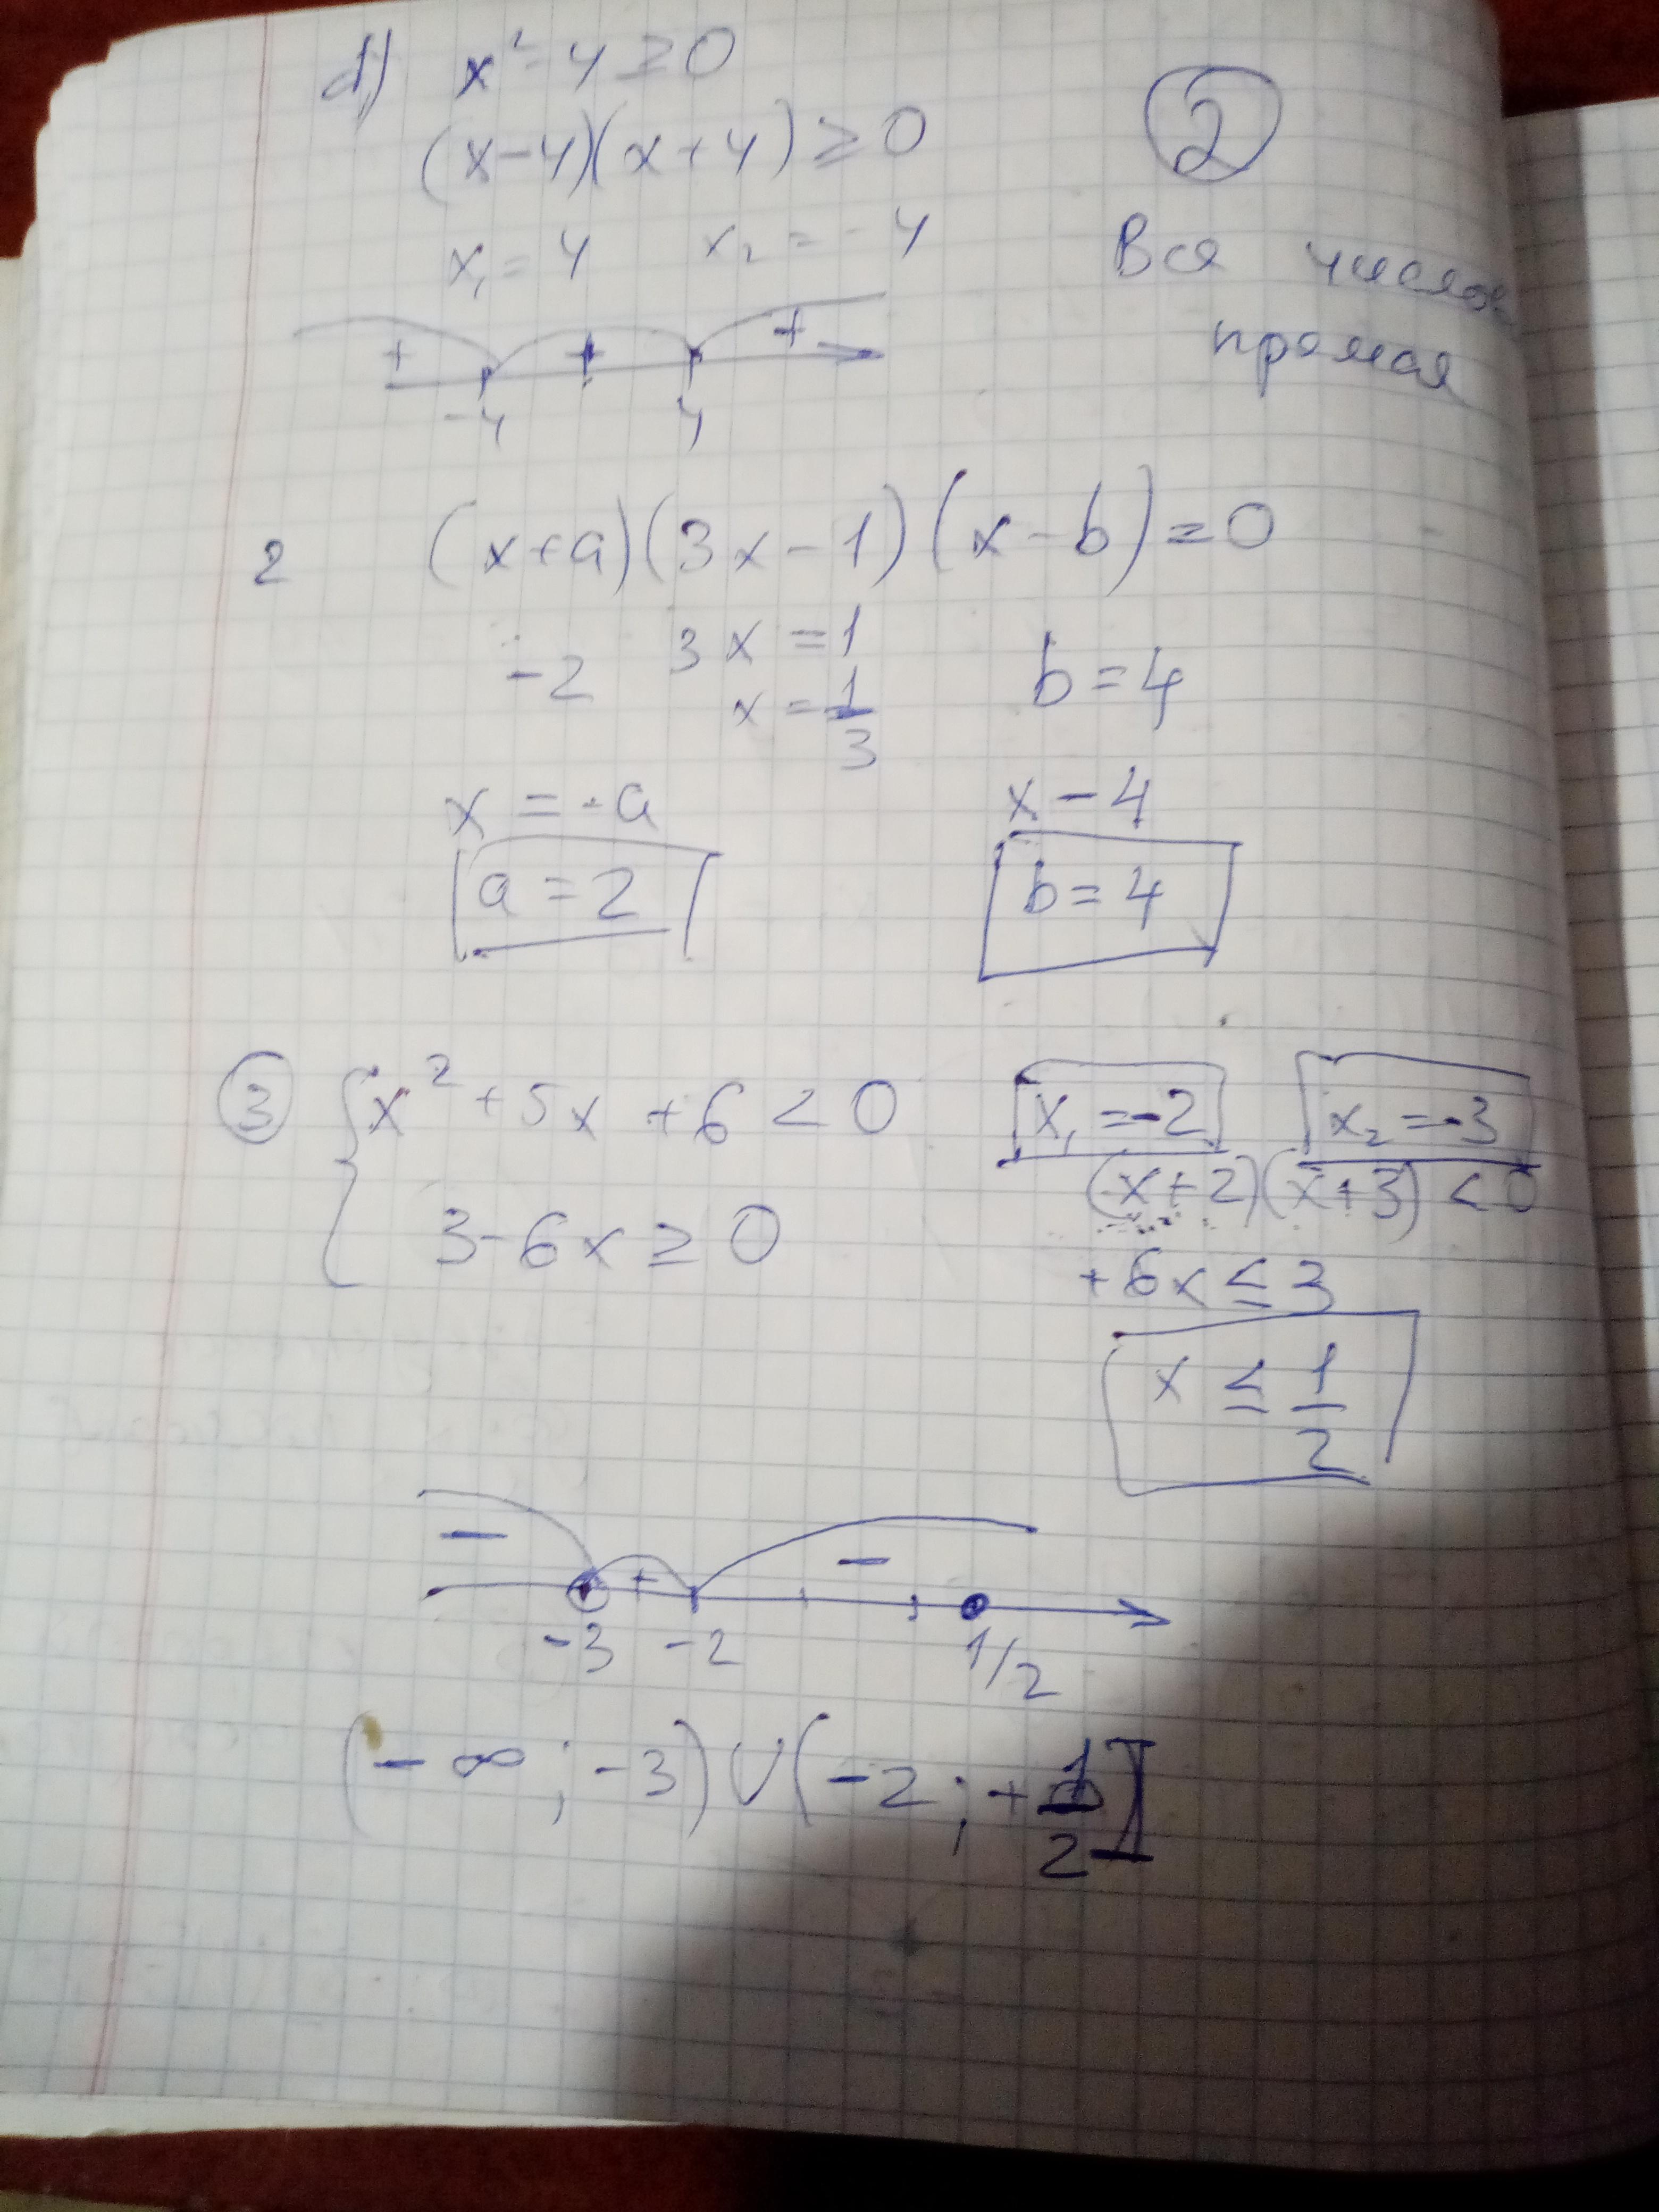 d) x² - 4 ≥ 0
(x-4)(x+4) ≥ 0
x₁ = 4 x₂ = -4
+ + +
-4 4
②
Вся числов
прямая
2 (x+a)(3x-1)(x-b) ≥ 0
-2 3x = 1 b = 4
x = 1/3
x = -a x - 4
a = 2 b = 4
③ { x² + 5x + 6 < 0 x₁ = -2 x₂ = -3
(x+2)(x+3) < 0
3 - 6x ≥ 0
+6x ≤ 3
x ≤ 1/2
- + -
-3 -2 1/2
(-∞; -3) ∪ (-2; +1/2]